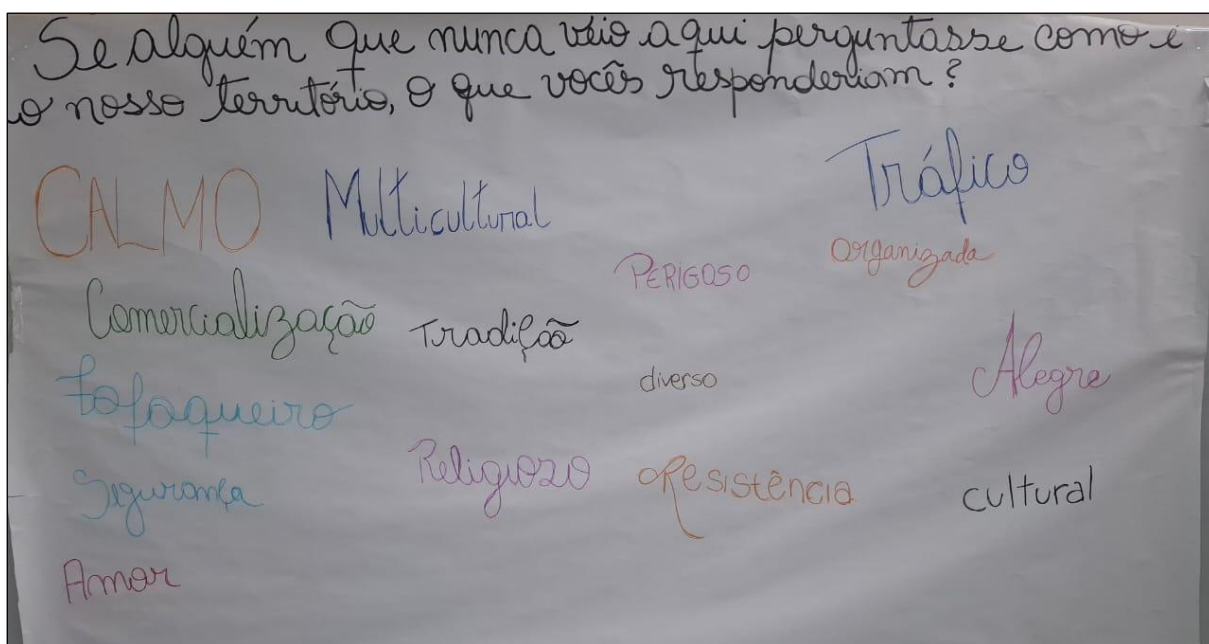 Se alguém que nunca veio aqui perguntasse como é
o nosso território, o que vocês responderiam?
Tráfico
CALMO Multicultural
PERIGOSO organizada
Comercialização Tradição
diverso Alegre
Fofoqueiro
Religiozo Resistência cultural
Segurança
Amor